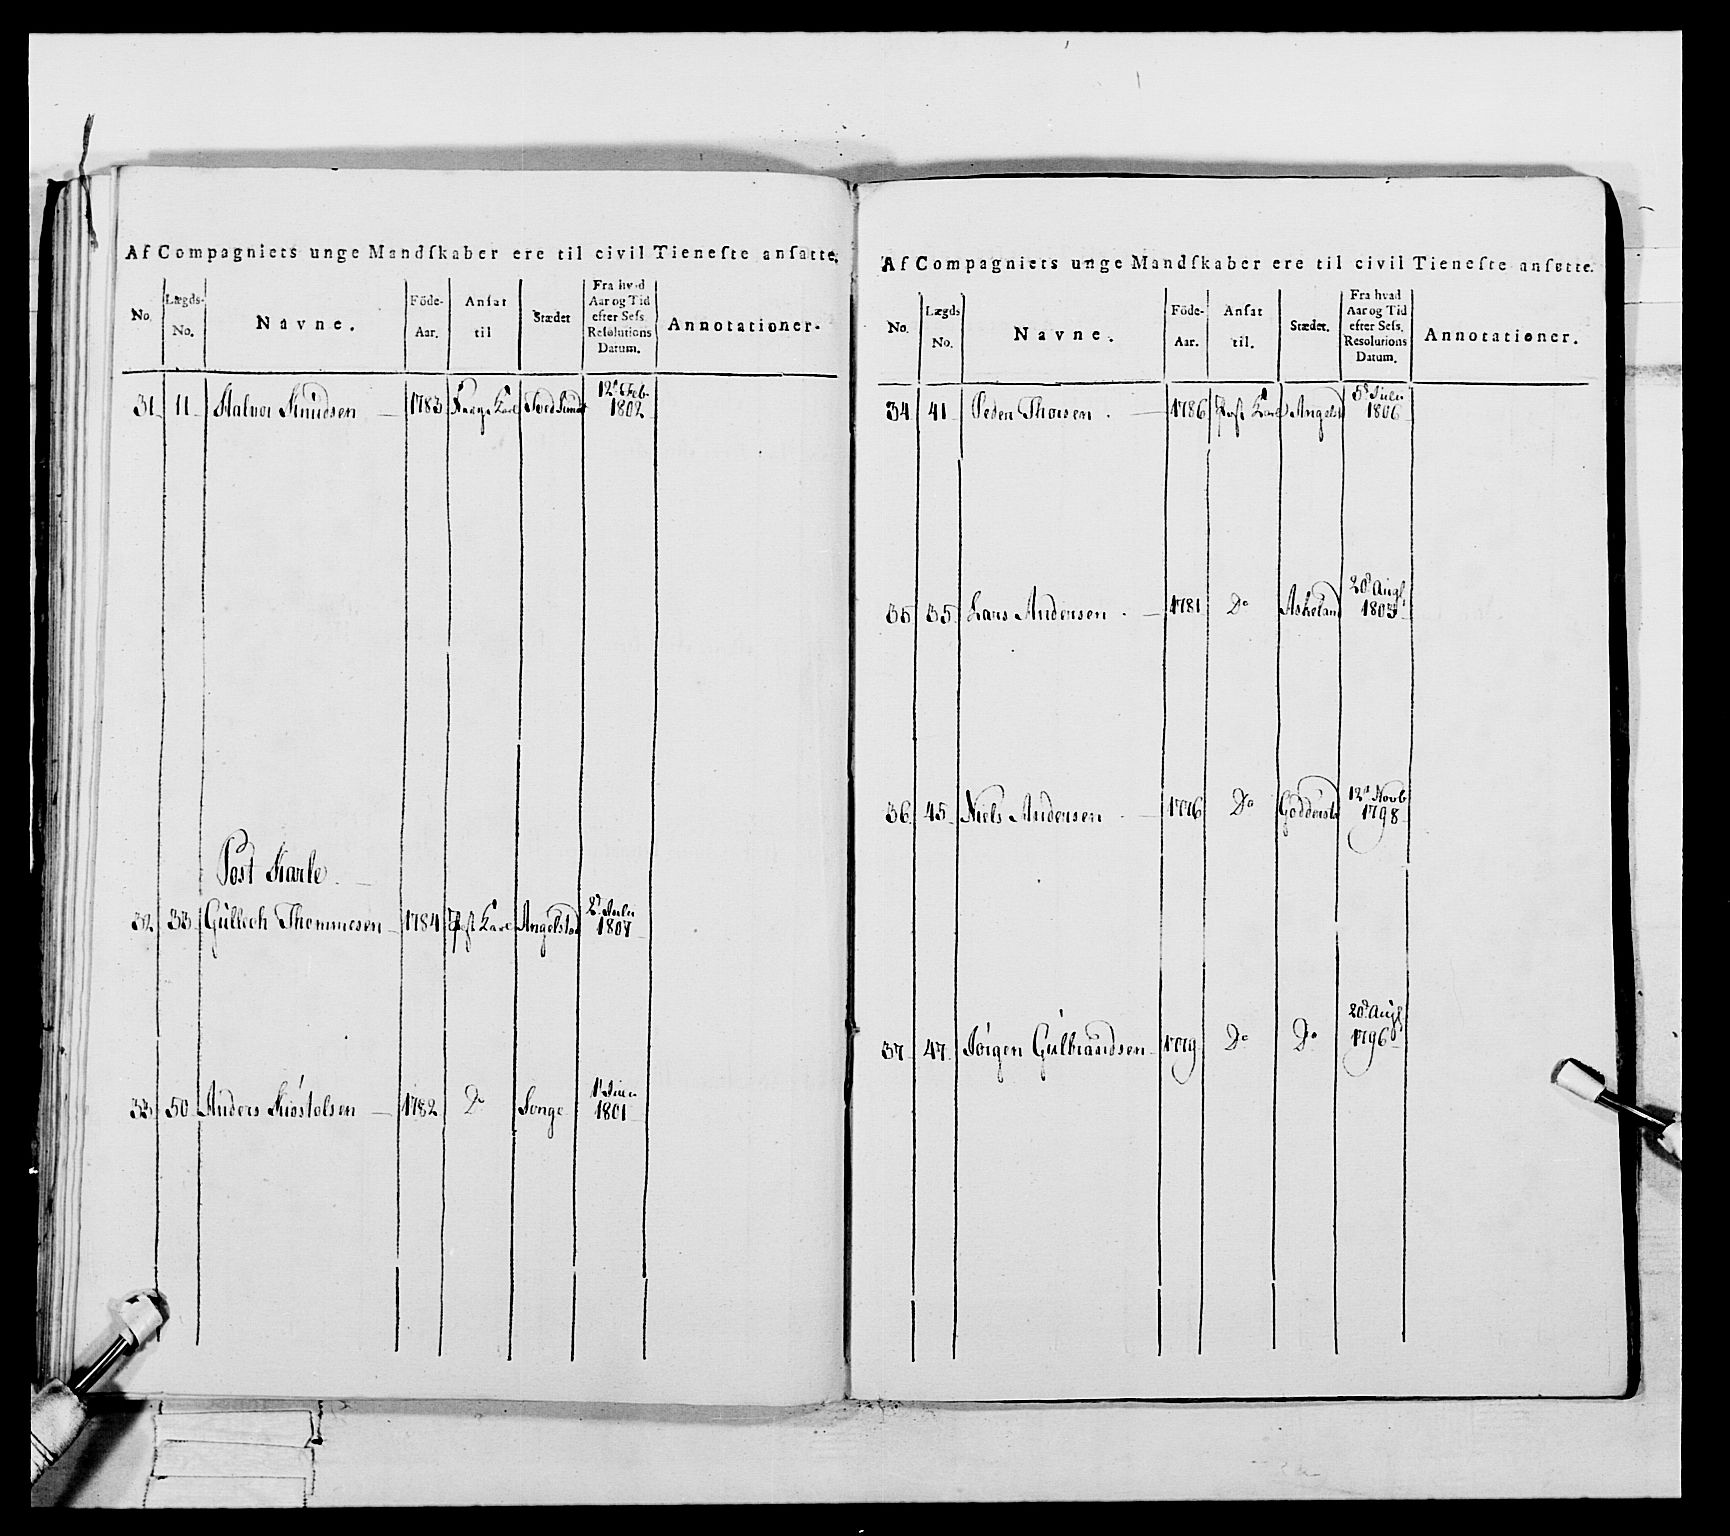 Af Compagniets unge Mandſkaber ere til civil Tieneſte anſatte.
No. Lægds- No. Navne. Föde- Aar. Anſat til Stædet Fra hvad Aar og Tid efter Seſs. Reſolutions Datum. Annotationer.
31 11 Halvor Knudsen 1783 Karl 12te Feb. 1802
Post Karle
32 33 Gullich Thommesen 1784 Post Karl Angelstad 2d Julii
33 50 Anders Kiöstelsen 1782 Do Songe 1t 1801
Af Compagniets unge Mandſkaber ere til civil Tieneſte anſatte.
No. Lægds No. Navne. Föde- Aar. Anſat til. Stædet. Fra hvad Aar og Tid efter Seſs. Resolutions Datum. Annotationer.
34 41 Peder Thorsen 1786 Post Karl Angelst 5d Julii 1806
35 35 Lars Andersen 1781 Do Askeland 20d Augt 1803
36 45 Niels Andersen 1776 Do 12d Novb 1798
37 47 Jörgen Gulbrandsen 1779 Do Do 20d Augt 1796